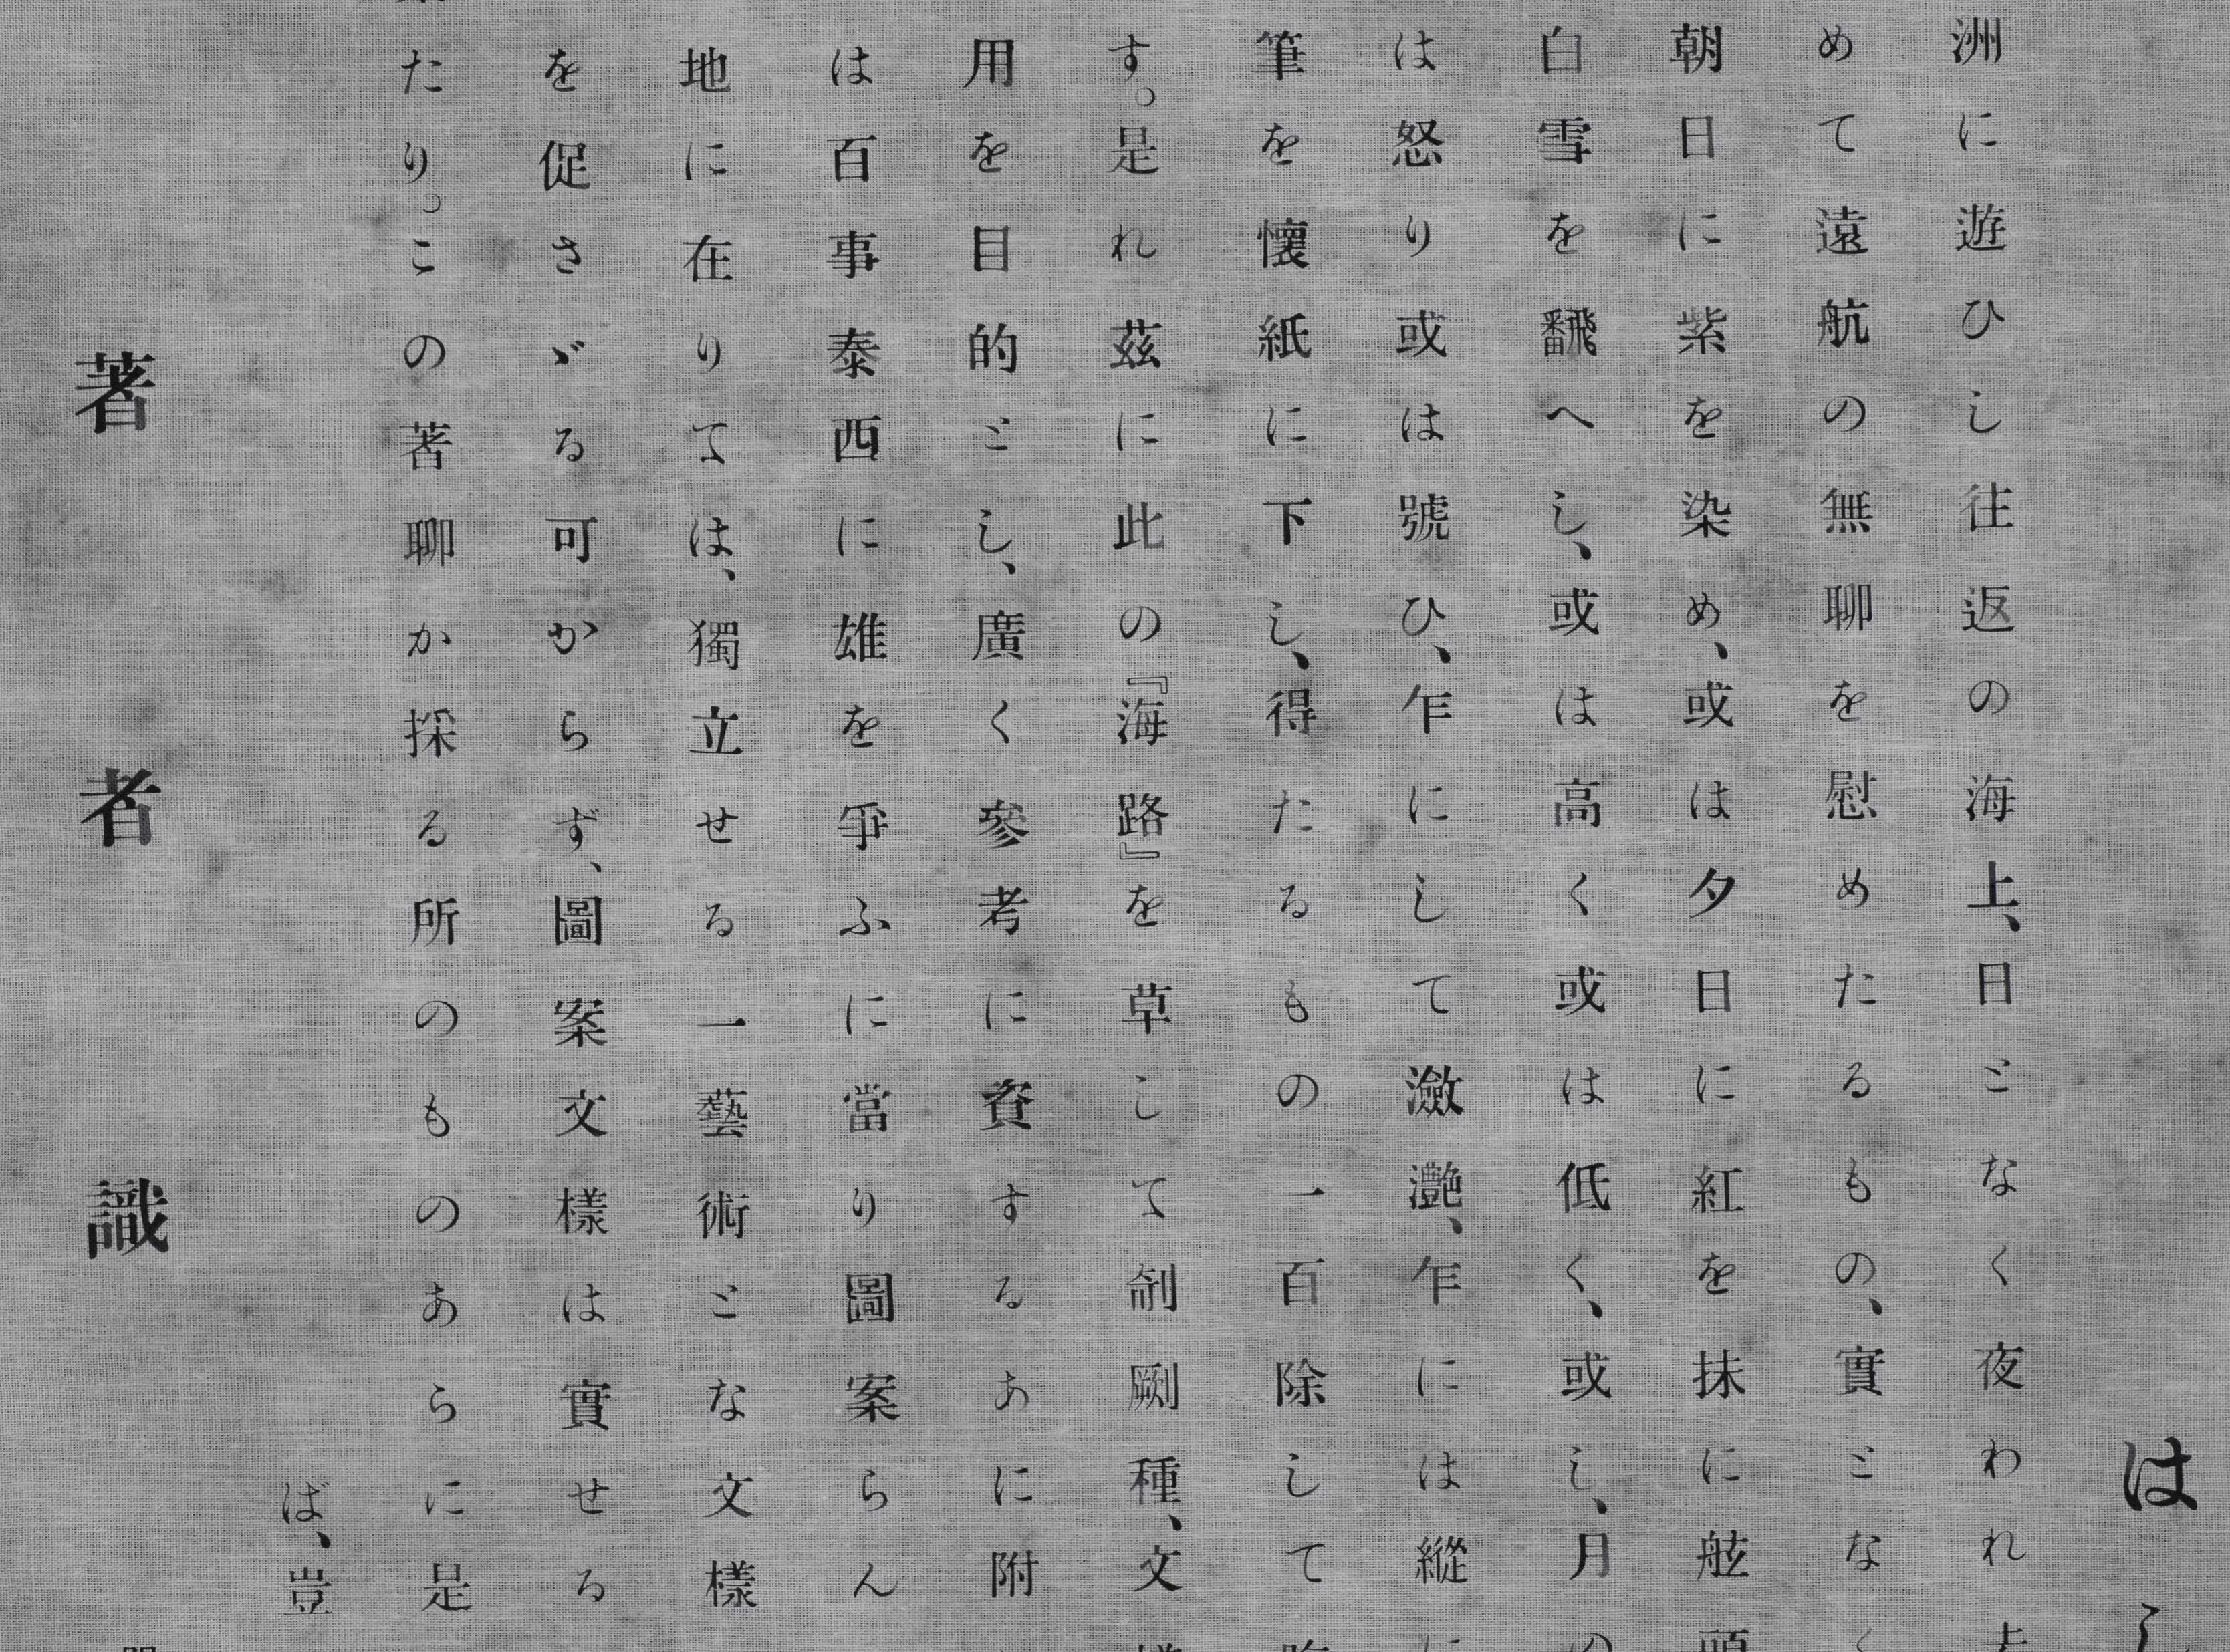 は
洲に遊ひし往返の海上、日となく夜われ
めて遠航の無聊を慰めたるもの、實となく
朝日に紫を染め、或は夕日に紅を抹に舷頭
白雪を飜へし、或は高く或は低く、或し、月の
は怒り或は號ひ、乍にして瀲灔、乍には縱に
筆を懷紙に下し、得たるもの一百除して
す。是れ茲に此の『海路』を草して剞劂種、文
用を目的とし、廣く參考に資するあに附
は百事泰西に雄を爭ふに當り圖案らん
地に在りては、獨立せる一藝術とな文樣
を促さゞる可からず、圖案文樣は實せる
たり。この著聊か採る所のものあらに是
ば、豈
著者識